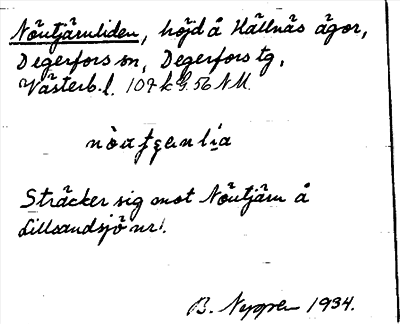 Nöutjärnliden, höjd å Hällnäs ägor,
Degerfors sn, Degerfors tg,
Västerb. l. 107 k G. 56 N M.
Sträcker sig mot Nöutjärn å
Lillsandsjö nr 1.
B. Nygren 1934.